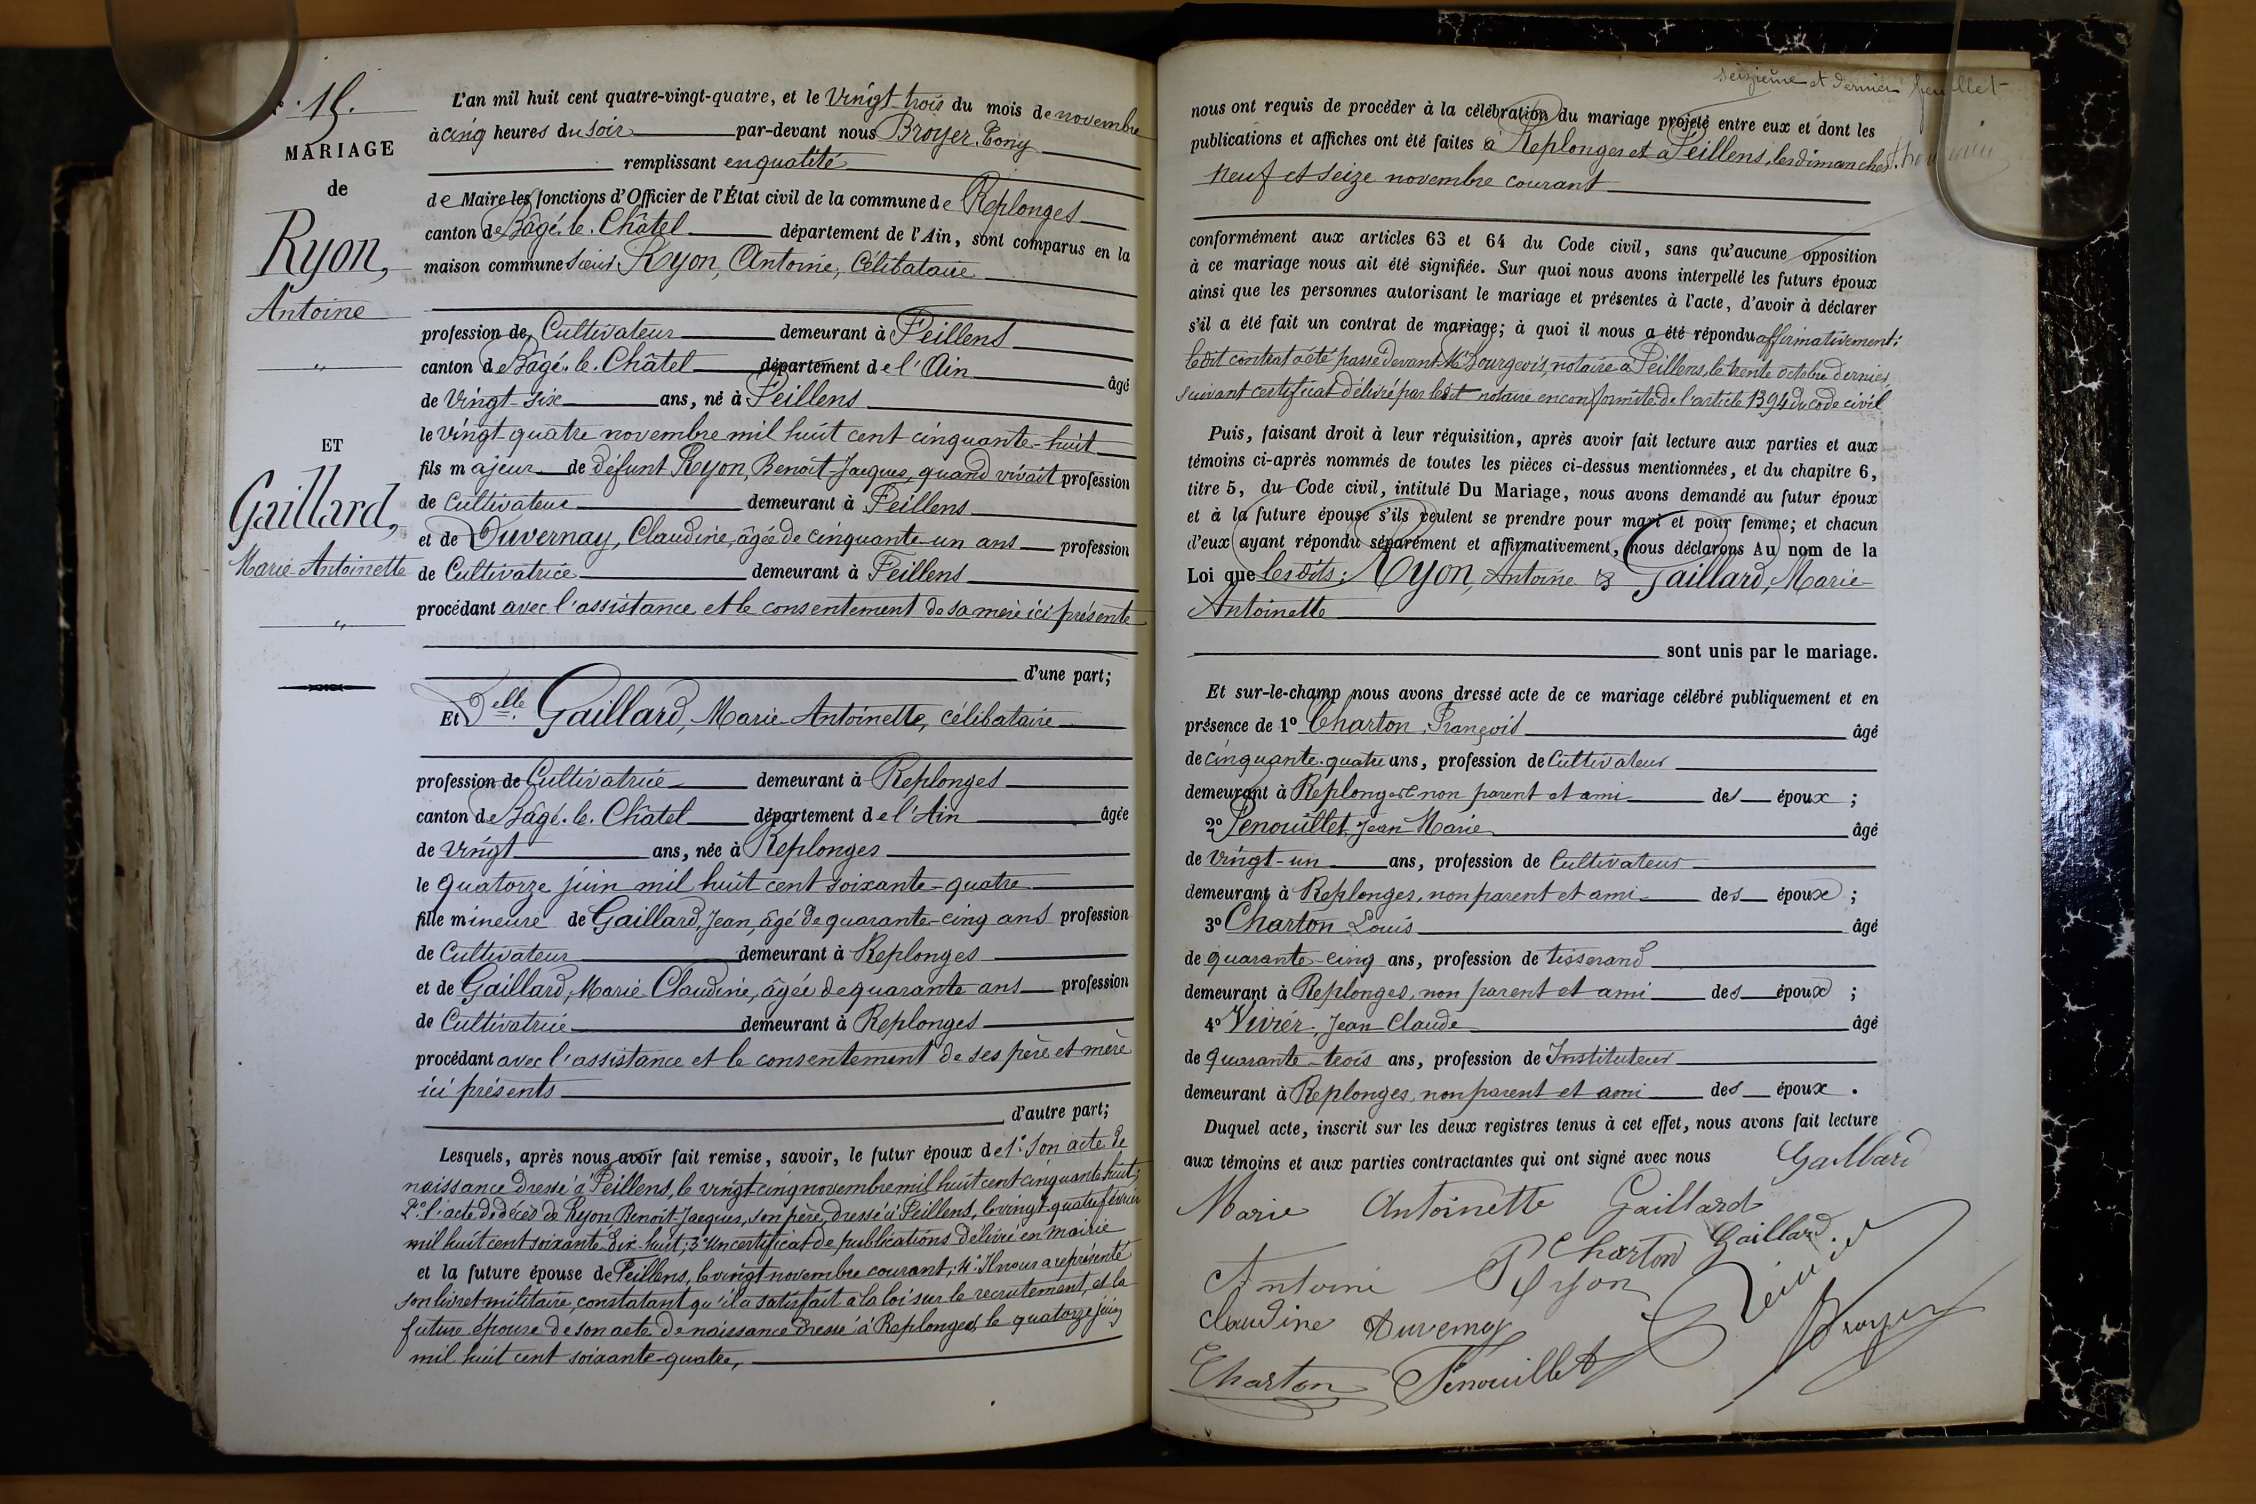 N° 15.
MARIAGE
de
Ryon,
Antoine
"
ET
Gaillard,
Marie-Antoinette
"
L'an mil huit cent quatre-vingt-quatre, et le vingt trois du mois de novembre
à cinq heures du soir par-devant nous Broyer, Tony
remplissant en qualité
de Maire les fonctions d'Officier de l'État civil de la commune de Replonges
canton de Bâgé-le-Châtel département de l'Ain, sont comparus en la
maison commune sieur Ryon, Antoine, célibataire
profession de Cultivateur demeurant à Feillens
canton de Bâgé-le-Châtel département de l'Ain âgé
de vingt-six ans, né à Feillens
le vingt-quatre novembre mil huit cent cinquante-huit
fils majeur de défunt Ryon, Benoît-Jacques, quand vivait profession
de Cultivateur demeurant à Feillens
et de Duvernay, Claudine, âgée de cinquante un ans profession
de Cultivatrice demeurant à Feillens
procédant avec l'assistance et le consentement de sa mère ici présente
d'une part;
Et Delle Gaillard, Marie-Antoinette, célibataire
profession de Cultivatrice demeurant à Replonges
canton de Bâgé-le-Châtel département de l'Ain âgée
de vingt ans, née à Replonges
le quatorze juin mil huit cent soixante-quatre
fille mineure de Gaillard, Jean, âgé de quarante-cinq ans profession
de Cultivateur demeurant à Replonges
et de Gaillard, Marie Claudine, âgée de quarante ans profession
de Cultivatrice demeurant à Replonges
procédant avec l'assistance et le consentement de ses père et mère
ici présents
d'autre part;
Lesquels, après nous avoir fait remise, savoir, le futur époux de 1° Son acte de
naissance dressé à Feillens, le vingt-cinq novembre mil huit cent cinquante huit;
2° l'acte de décès de Ryon, Benoît-Jacques, son père, dressé à Feillens, le vingt-quatre février
mil huit cent soixante-dix-huit; 3° Un certificat de publications délivré en mairie
et la future épouse de Feillens, le vingt novembre courant; 4° Il nous a représenté
son livret militaire, constatant qu'il a satisfait à la loi sur le recrutement, et la
future épouse de son acte de naissance dressé à Replonges, le quatorze juin
mil huit cent soixante-quatre,
seizième et dernier feuillet
nous ont requis de procéder à la célébration du mariage projeté entre eux et dont les
publications et affiches ont été faites à Replonges et à Feillens, les dimanches
neuf et seize novembre courant
conformément aux articles 63 et 64 du Code civil, sans qu'aucune opposition
à ce mariage nous ait été signifiée. Sur quoi nous avons interpellé les futurs époux
ainsi que les personnes autorisant le mariage et présentes à l'acte, d'avoir à déclarer
s'il a été fait un contrat de mariage; à quoi il nous a été répondu affirmativement:
ledit contrat a été passé devant Me Bourgeois, notaire à Feillens, le trente octobre dernier,
suivant certificat délivré par ledit notaire en conformité de l'article 1394 du code civil
Puis, faisant droit à leur réquisition, après avoir fait lecture aux parties et aux
témoins ci-après nommés de toutes les pièces ci-dessus mentionnées, et du chapitre 6,
titre 5, du Code civil, intitulé Du Mariage, nous avons demandé au futur époux
et à la future épouse s'ils veulent se prendre pour mari et pour femme; et chacun
d'eux ayant répondu séparément et affirmativement, nous déclarons Au nom de la
Loi que lesdits: Ryon, Antoine & Gaillard, Marie
Antoinette
sont unis par le mariage.
Et sur-le-champ nous avons dressé acte de ce mariage célébré publiquement et en
présence de 1° Charton, François âgé
de cinquante-quatre ans, profession de Cultivateur
demeurant à Replonges non parent et ami des époux ;
2° Fenouillet, Jean Marie âgé
de vingt-un ans, profession de Cultivateur
demeurant à Replonges, non parent et ami des époux ;
3° Charton Louis âgé
de quarante-cinq ans, profession de tisserand
demeurant à Replonges, non parent et ami des époux ;
4° Vivier, Jean Claude âgé
de quarante-trois ans, profession de Instituteur
demeurant à Replonges, non parent et ami des époux .
Duquel acte, inscrit sur les deux registres tenus à cet effet, nous avons fait lecture
aux témoins et aux parties contractantes qui ont signé avec nous Gaillard
Marie Antoinette Gaillard
Charton Gaillard
Antoine Ryon
Claudine Duvernay
Broyer
Charton Fenouillet